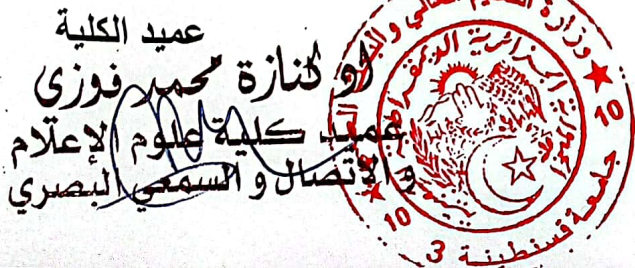 عميد الكلية
او كنازة محمد فوزي
عميد كلية علوم الإعلام
والاتصال و السمعي البصري
وزارة التعليم العالي و
الجزائرية الديمقراطية
10
10
جامعة قسنطينة 3